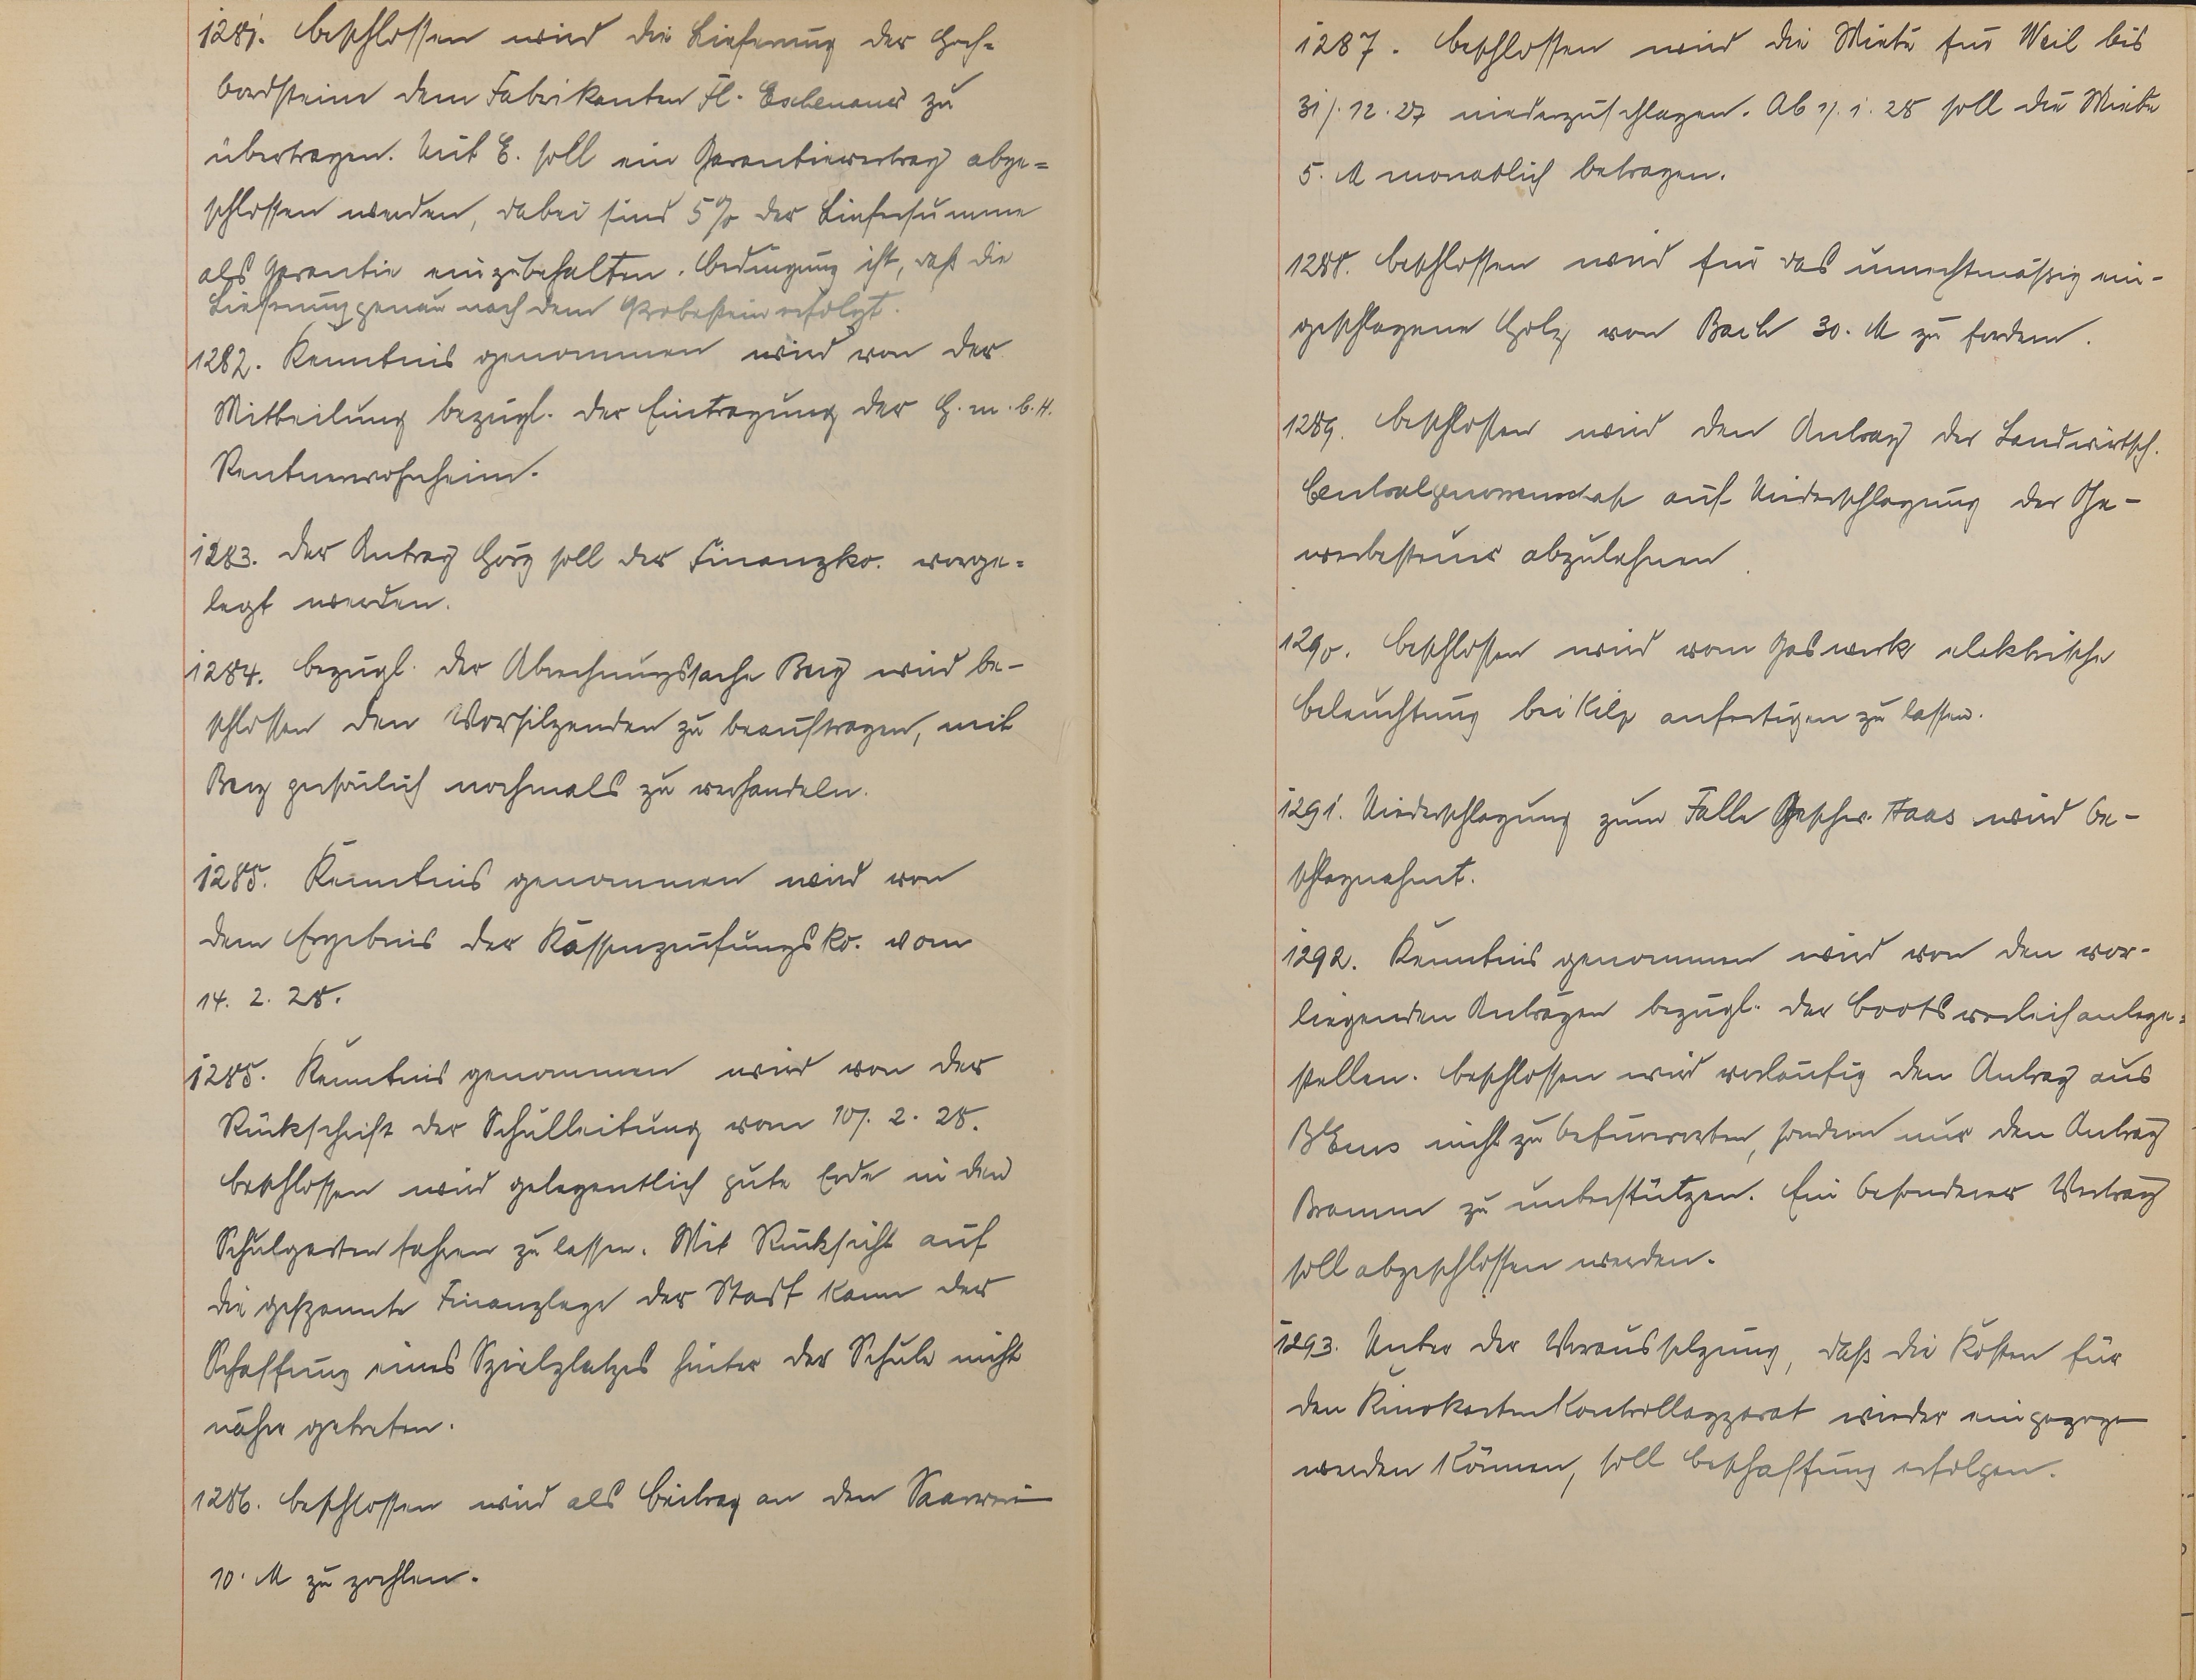 1281. Beschlossen wird die Lieferung der Hoch=
bordsteine dem Fabrikanten Fl. Eschenauer zu
übertragen. Mit E. soll ein Garantievertrag abge=
schlossen werden, dabei sind 5% der Liefersumme
als Garantie einzubehalten. Bedingung ist, daß die
Lieferung genau nach dem Probestein erfolgt.
1282. Kenntnis genommen wird von der
Mitteilung bezügl. der Eintragung der G.m.b.H.
Rentnerwohnheim.
1283. Der Antrag Görg soll der Finanzko. vorge=
legt werden.
1284. Bezügl. der Abrechnungssache Berg wird be-
schlossen den Vorsitzenden zu beauftragen, mit
Berg persönlich nochmals zu verhandeln.
1285. Kenntnis genommen wird von
dem Ergebnis der Kassenprüfungsko. vom
14. 2. 28.
1285. Kenntnis genommen wird von der
Rückschrift der Schulleitung vom 10/. 2. 28.
Beschlossen wird gelegentlich gute Erde in den
Schulgarten fahren zu lassen. Mit Rücksicht auf
die gespannte Finanzlage der Stadt kann der
Schaffung eines Spielplatzes hinter der Schule nicht
näher getreten.
1286. Beschlossen wird als Beitrag an den Saarverein
10. M zu zahlen.
1287. Beschlossen wird die Miete für Weil bis
31/. 12. 27 niederzuschlagen. Ab 1/. 1. 28 soll die Miete
5. M monatlich betragen.
1288. Beschlossen wird für das unrechtmäßig ein-
geschlagene Holz von Bach 30. M zu fordern.
1289. Beschlossen wird den Antrag der Landwirtsch.
Centralgenossenschaft auf Niederschlagung der Ge-
werbesteuer abzulehnen
1290. Beschlossen wird vom Gaswerk elektrische
Beleuchtung bei Kilp anfertigen zu lassen.
1291. Niederschlagung zum Falle Geschw. Haas wird be-
schlagnahmt.
1292. Kenntnis genommen wird von den vor-
liegenden Anträgen bezügl. der Bootsverleihanlege=
stellen. Beschlossen wird vorläufig den Antrag aus
B/Ems nicht zu befürworten, sondern nur den Antrag
Bramm zu unterstützen. Ein besonderer Vertrag
soll abgeschlossen werden.
1293. Unter der Voraussetzung, daß die Kosten für
den Kinokartenkontrollapparat wieder eingezogen
werden können, soll Beschaffung erfolgen.